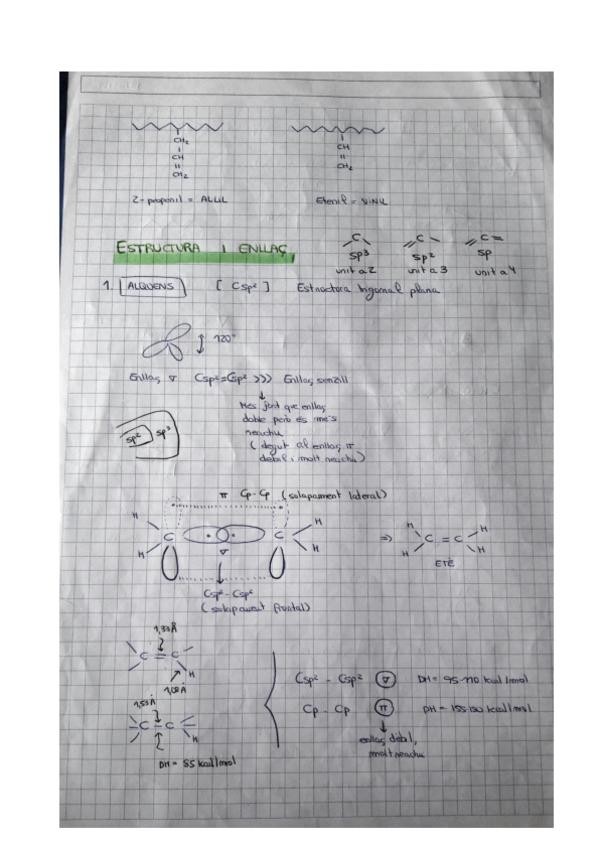 CH₂
CH
CH₂
CH
CH₂
2-propenil = AL·LIL
Etenil = VINIL
ESTRUCTURA I ENLLAÇ
C C C
sp³ sp² sp
unit a 2 unit a 3 unit a 4
1. ALQUENS [ Csp² ] Estructura trigonal plana
120°
Enllaç σ Csp²=Csp² >>> Enllaç senzill
↓
Més fort que enllaç
doble però és més
reactiu
( degut al enllaç π
dèbil i molt reactiu)
sp² sp³
π Cp-Cp (solapament lateral)
H H
C C
H H
σ
⇒
H H
C = C
H H
ETÈ
Csp²-Csp²
(solapament frontal)
1,33Å
C = C
H
1,08Å
1,53Å
C - C
H
DH = 85 kcal/mol
Csp² - Csp² σ DH = 95-110 kcal/mol
Cp - Cp π
enllaç dèbil,
molt reactiu